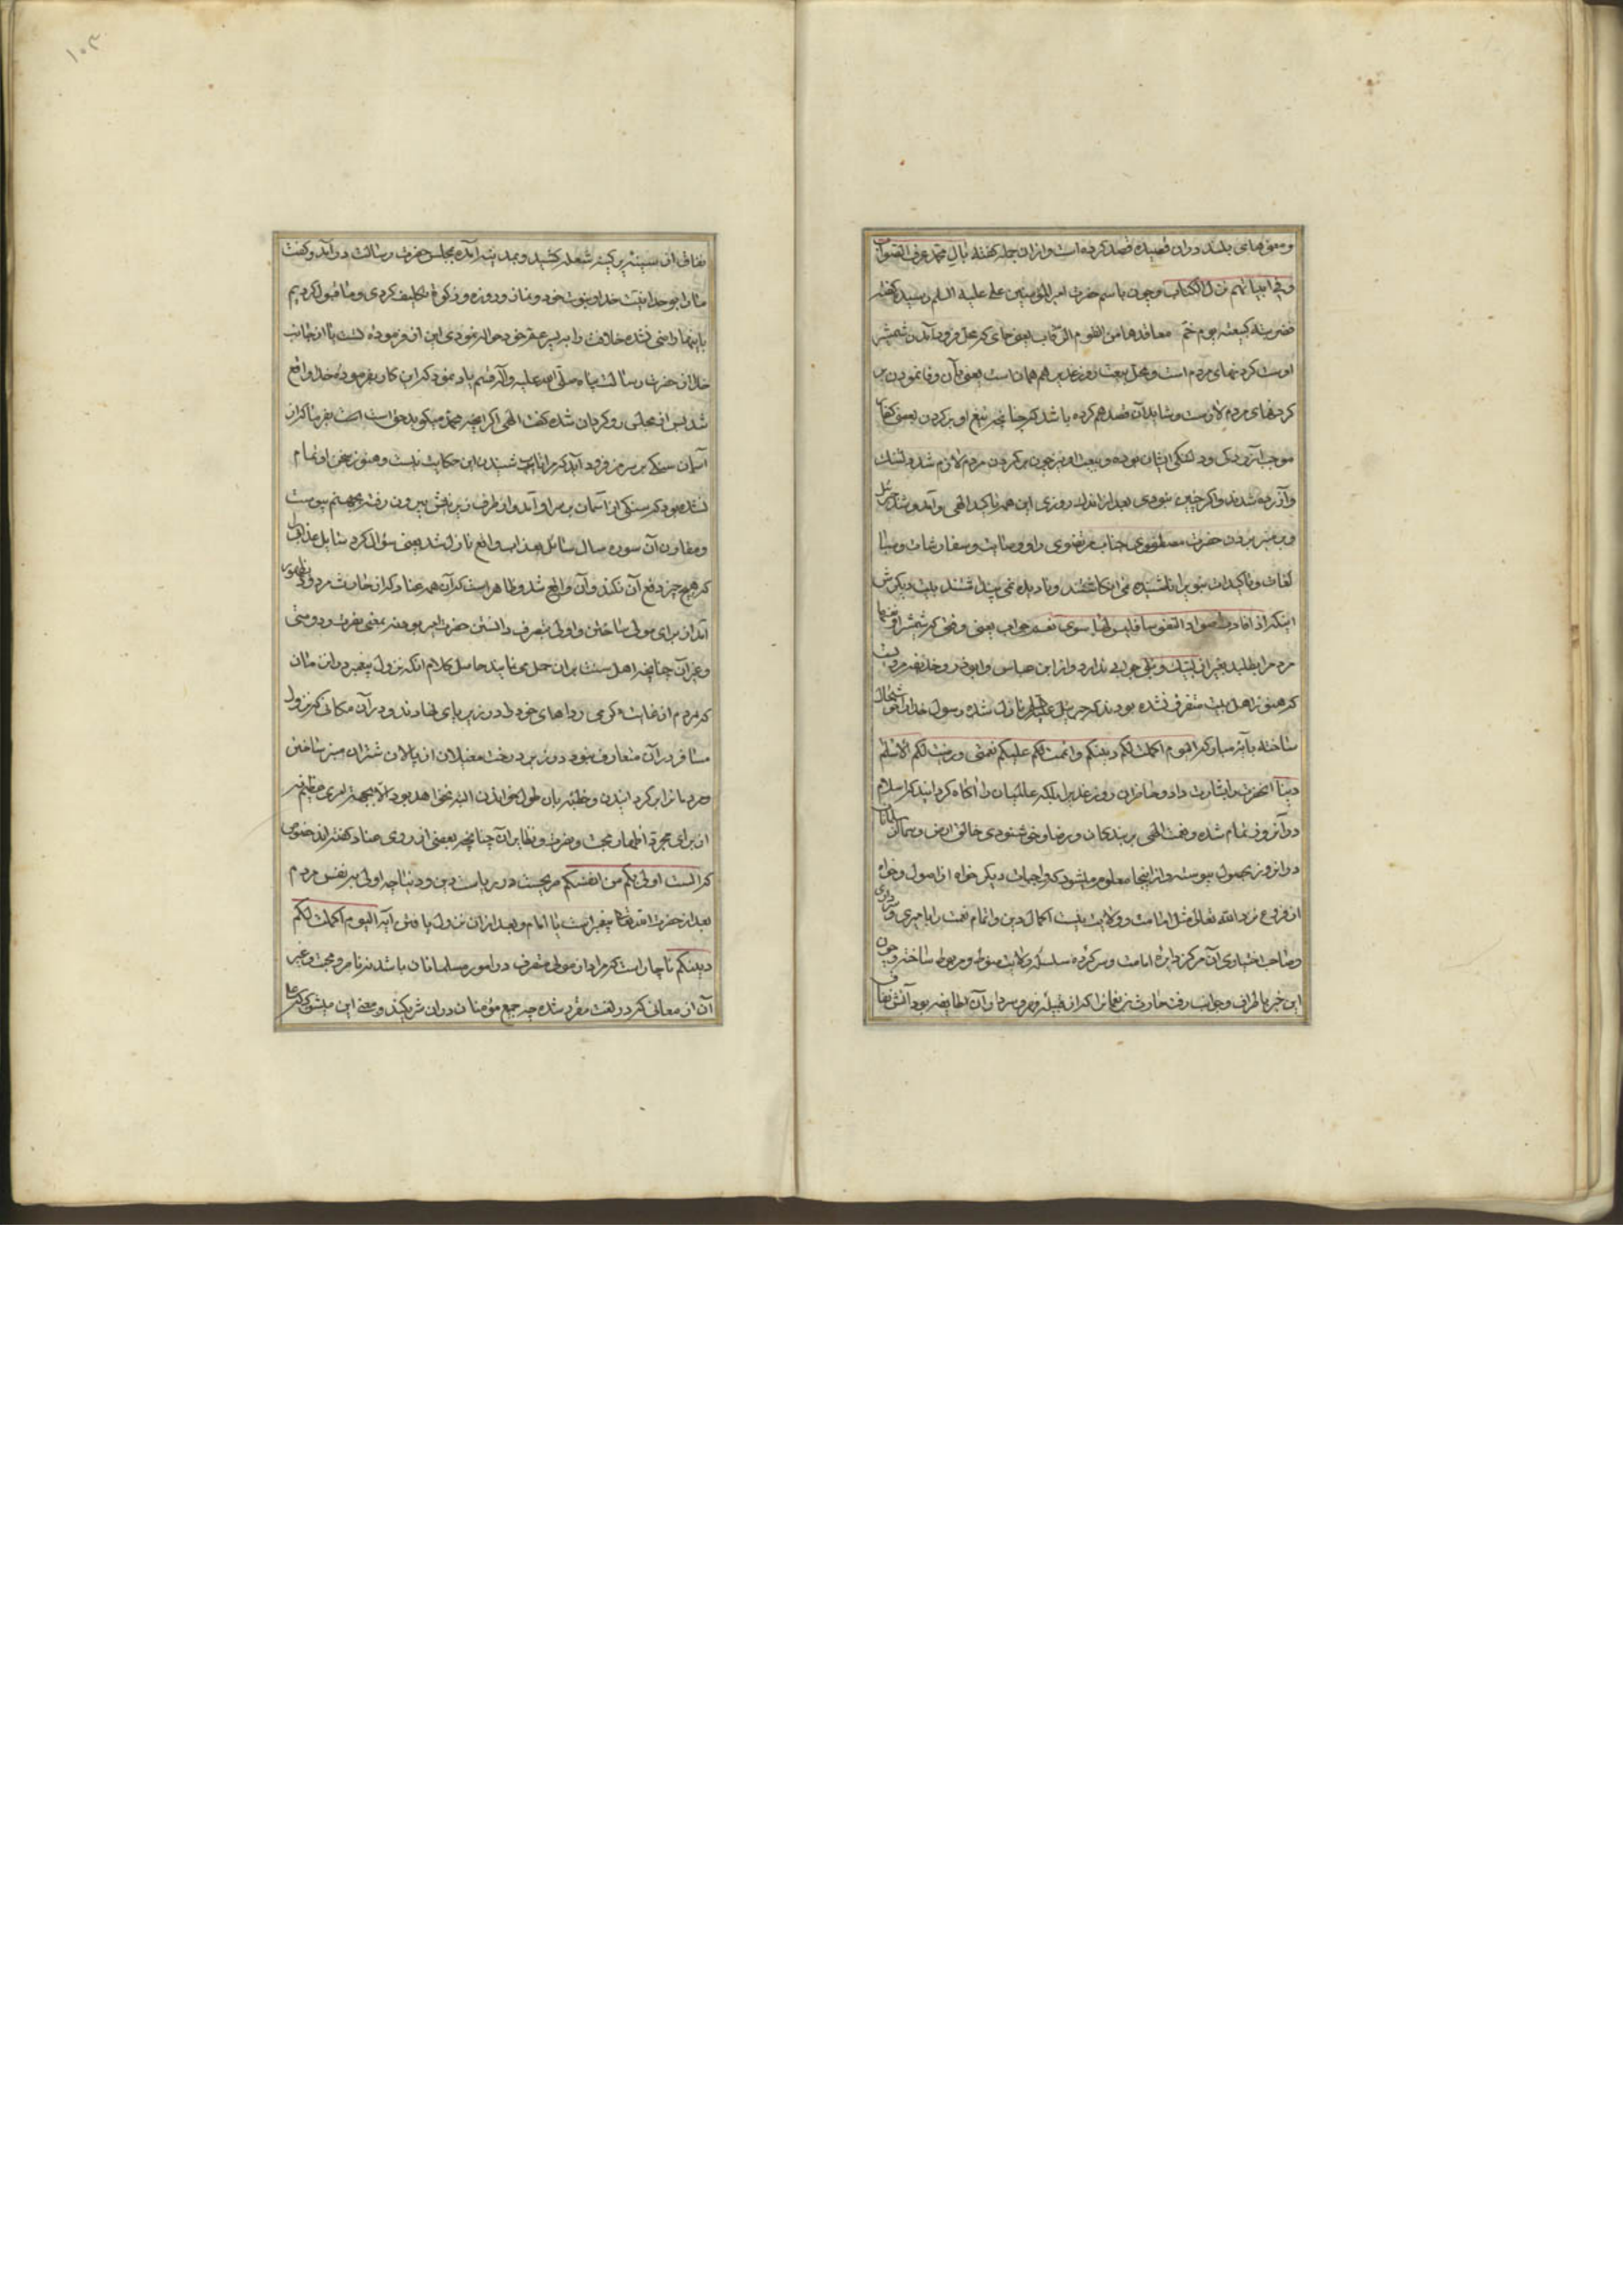 و معنی‌های بلند دران قصیده قصد کرده است و ازان جمله گفته بآل محمد عرف الصواب
و فی ابیاتهم نزل الکتاب و چون باسم حضرت امیر المؤمنین علی علیه السلم رسیده گفته
ضربته کبیعته بخم معاقدها من القوم الرقاب یعنی جای که محل فرود آمدن شمشیر
اوست گردنهای مردم است و محل بیعت روز غدیر هم همان است یعنی بآن وفا نمودن بر
گردنهای مردم لازمست و شاید آن قصد هم کرده باشد که چنانچه تیغ او بر گردن بعضی کفار
موجب آزردگی و دلتنگی ایشان بوده و بیعت او نیز چون بر گردن مردم لازم شد دلتنگ
و آزرده شدند و اگر چنین نبودی بعد از اندک روزی این همه تاکید الهی و آمد و شد جبرئیل
و بر منبر بردن حضرت مصطفوی جناب مرتضوی را و وصایت و سفارشات و مبا
لغات و تاکیدات نبوی را ناشنیده نمی‌انگاشتند و نادیده نمی‌پنداشتند بیت دیگرش
اینکه اذا نادت صوارمه النفوسا فلیس لها سوی نعم جواب یعنی وقتی که شمشیر او نفسها
مردم را بطلبد بغیر از لبیک و بلی جوابی ندارد و از ابن عباس و ابوذر و حذیفه مرویست
که هنوز اهل بیت متفرق نشده بودند که جبرئیل علیه السلام نازل شده رسول خدا را خوشحال
ساخته بآیه مبارکه الیوم اکملت لکم دینکم و اتممت علیکم نعمتی و رضیت لکم الاسلام
دینا آنحضرت را بشارت داد و حاضران روز غدیر بلکه عالمیان را آگاه گردانید که اسلام
در آنروز تمام شده و نعمت الهی بر بندگان و رضا و خوشنودی خالق ارض و سما از
در انروز بحصول پیوسته و از اینجا معلوم میشود که واجبات دیگر خواه از اصول و خواه
از فروع نزد الله تعالی مثل امامت و ولایت نیست اکمال دین و اتمام نعمت را با میری و سرداری
و صاحب اختیاری آن مرکز دایره امامت و سرکرده سلسله ولایت منوط و مربوط ساخته و چون
این خبر باطراف و جوانب رفت حارث بن نعمان که از قبیله فهر و سردار آن طایفه بود آتش نفاق
نفاق از سینه پر کینه شعله کشید و بمدینه آمده بمجلس حضرت رسالت درآمد و گفت
ما را بوحدانیت خدا و نبوت خود و نماز و روزه و زکوة تکلیف کردی و ما قبول کردیم
باینها راضی نشده خلافت را به پسر عم خود حواله نمودی این از فرموده تست یا از جانب
خدا آن حضرت رسالت پناه صلی الله علیه و آله قسم یاد نمود که این کار بفرموده خدا واقع
شد پس از مجلس روگردان شده گفت الهی اگر آنچه محمد میگوید حق است بفرما که از
آسمان سنگی بر سر من فرود آید که مرا تاب شنیدن این حکایت نیست و هنوز سخن او تمام
نشده بود که سنگی از آسمان بر سر او آمد و از طرف زیرینش بیرون رفت بجهنم پیوست
و مقارن آن سوره سال سائل بعذاب واقع نازل شد یعنی سؤال کرد سایل عذاب را
که هیچ چیز دفع آن نکند و آن واقع شد و ظاهر است که آن همه عناد که از حارث مردود بظهور
آمد از برای مولی ساختن و اولی بتصرف دانستن حضرت امیر بوده نه بمعنی نصرت و دوستی
و غیر آن چنانچه اهل سنت بران حمل می‌نمایند حاصل کلام آنکه نزول پیغمبر در این زمان
که مردم از غایت گرمی رداهای خود را در زیر پای نهادند و در آن مکانی که نزول
مسافر در آن متعارف نبود در زیر درخت مغیلان از پالان شتران منبر ساختن
و مردمانرا برگردانیدن و خطبه بان طول خواندن البته نخواهد بود الا بجهت امری عظیم نه
از برای مجرد اظهار محبت و نصرت و نظایر آن چنانچه بعضی از روی عناد گفته‌اند خصوصا
که الست اولی بکم من انفسکم صریحست در ریاست دین و دنیا چه اولی بهر نفس مردم
بعد از حضرت الله تعالی پیغمبر است یا امام و بعد از آن نزول یافتن آیه الیوم اکملت لکم
دینکم ناچار است که مراد از مولی متصرف در امور مسلمانان باشد نه ناصر و محب و غیر
آن از معانی که در لغت مقرر شده چه جمیع مؤمنان دران شریکند و معنی این میشود که